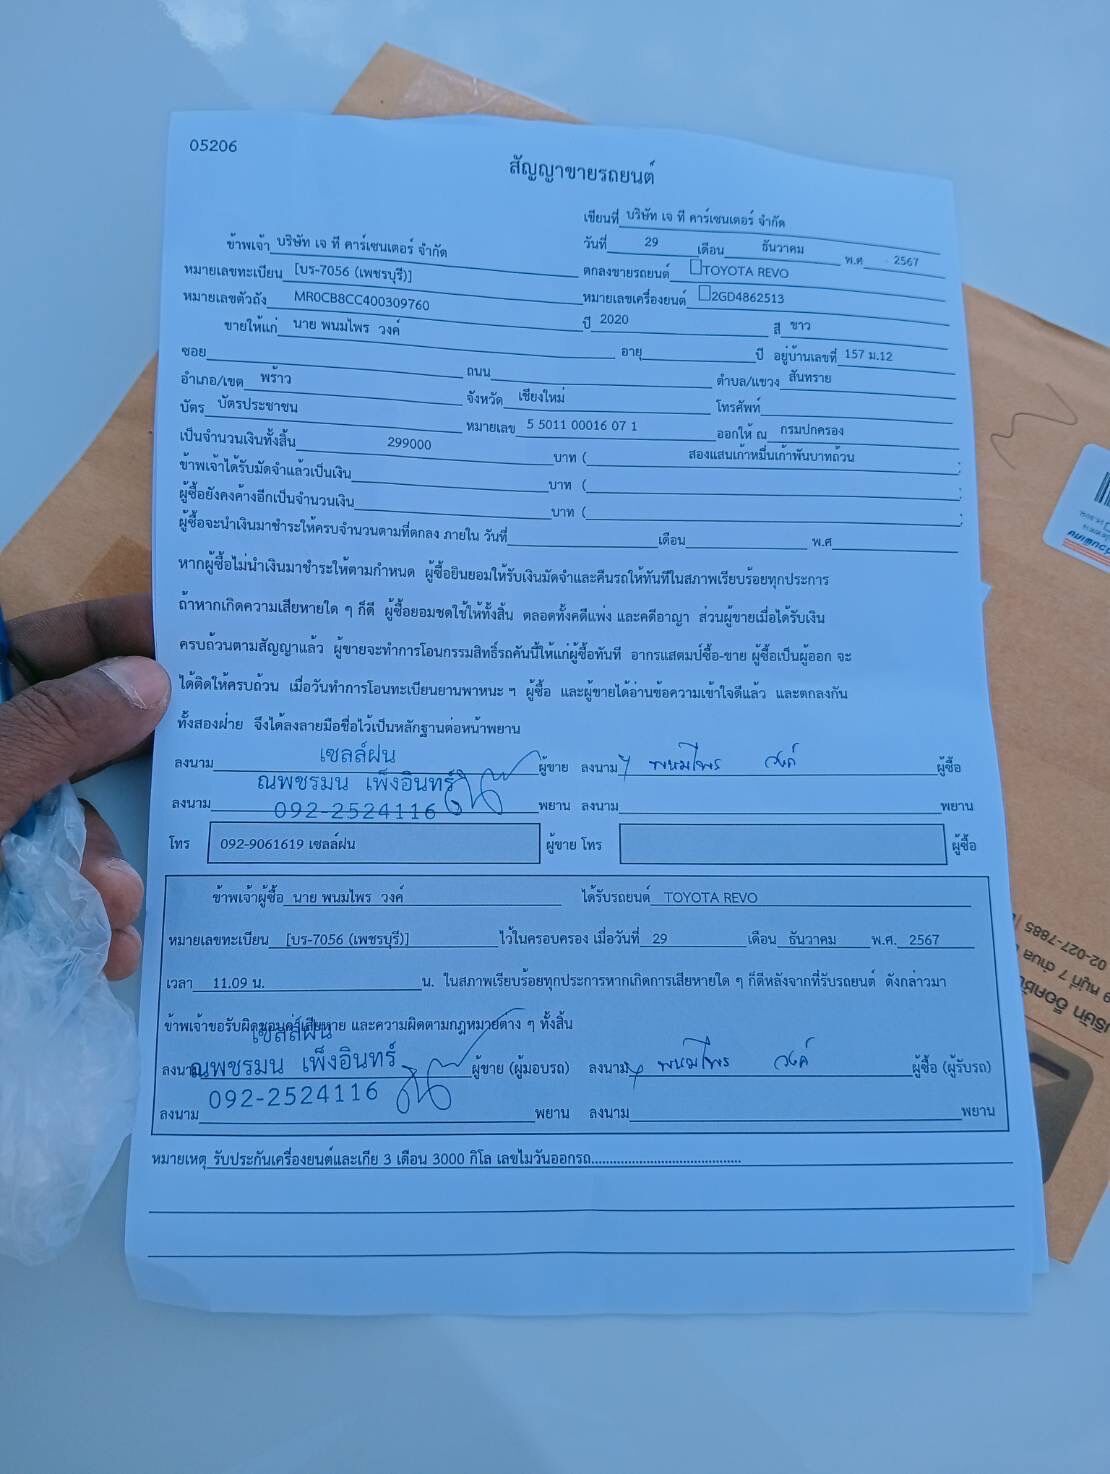 05206
สัญญาขายรถยนต์
เขียนที่ บริษัท เจ ที คาร์เซนเตอร์ จำกัด
วันที่ 29 เดือน ธันวาคม พ.ศ 2567
ข้าพเจ้า บริษัท เจ ที คาร์เซนเตอร์ จำกัด ตกลงขายรถยนต์ TOYOTA REVO
หมายเลขทะเบียน [บร-7056 (เพชรบุรี)] หมายเลขเครื่องยนต์ 2GD4862513
หมายเลขตัวถัง MR0CB8CC400309760 ปี 2020 สี ขาว
ขายให้แก่ นาย พนมไพร วงค์ อายุ ปี อยู่บ้านเลขที่ 157 ม.12
ซอย ถนน ตำบล/แขวง สันทราย
อำเภอ/เขต พร้าว จังหวัด เชียงใหม่ โทรศัพท์
บัตร บัตรประชาชน หมายเลข 5 5011 00016 07 1 ออกให้ ณ กรมปกครอง
เป็นจำนวนเงินทั้งสิ้น 299000 บาท ( สองแสนเก้าหมื่นเก้าพันบาทถ้วน
ข้าพเจ้าได้รับมัดจำแล้วเป็นเงิน บาท (
ผู้ซื้อยังคงค้างอีกเป็นจำนวนเงิน บาท (
ผู้ซื้อจะนำเงินมาชำระให้ครบจำนวนตามที่ตกลง ภายใน วันที่ เดือน พ.ศ
หากผู้ซื้อไม่นำเงินมาชำระให้ตามกำหนด ผู้ซื้อยินยอมให้รับเงินมัดจำและคืนรถให้ทันทีในสภาพเรียบร้อยทุกประการ
ถ้าหากเกิดความเสียหายใด ๆ ก็ดี ผู้ซื้อยอมชดใช้ให้ทั้งสิ้น ตลอดทั้งคดีแพ่ง และคดีอาญา ส่วนผู้ขายเมื่อได้รับเงิน
ครบถ้วนตามสัญญาแล้ว ผู้ขายจะทำการโอนกรรมสิทธิ์รถคันนี้ให้แก่ผู้ซื้อทันที อากรแสตมป์ซื้อ-ขาย ผู้ซื้อเป็นผู้ออก จะ
ได้ติดให้ครบถ้วน เมื่อวันทำการโอนทะเบียนยานพาหนะ ฯ ผู้ซื้อ และผู้ขายได้อ่านข้อความเข้าใจดีแล้ว และตกลงกัน
ทั้งสองฝ่าย จึงได้ลงลายมือชื่อไว้เป็นหลักฐานต่อหน้าพยาน
เซลล์ฝน
ลงนาม ผู้ขาย ลงนาม พนมไพร วงค์ ผู้ซื้อ
ณพชรมน เพ็งอินทร์
ลงนาม 092-2524116 พยาน ลงนาม พยาน
โทร 092-9061619 เซลล์ฝน ผู้ขาย โทร ผู้ซื้อ
ข้าพเจ้าผู้ซื้อ นาย พนมไพร วงค์ ได้รับรถยนต์ TOYOTA REVO
หมายเลขทะเบียน [บร-7056 (เพชรบุรี)] ไว้ในครอบครอง เมื่อวันที่ 29 เดือน ธันวาคม พ.ศ. 2567
เวลา 11.09 น. น. ในสภาพเรียบร้อยทุกประการหากเกิดการเสียหายใด ๆ ก็ดีหลังจากที่รับรถยนต์ ดังกล่าวมา
ข้าพเจ้าขอรับผิดชอบค่าเสียหาย และความผิดตามกฎหมายต่าง ๆ ทั้งสิ้น
เซลล์ฝน
ลงนาม ณพชรมน เพ็งอินทร์ ผู้ขาย (ผู้มอบรถ) ลงนาม พนมไพร วงค์ ผู้ซื้อ (ผู้รับรถ)
092-2524116
ลงนาม พยาน ลงนาม พยาน
หมายเหตุ รับประกันเครื่องยนต์และเกีย 3 เดือน 3000 กิโล เลขไมวันออกรถ.........................................
02-027-7885